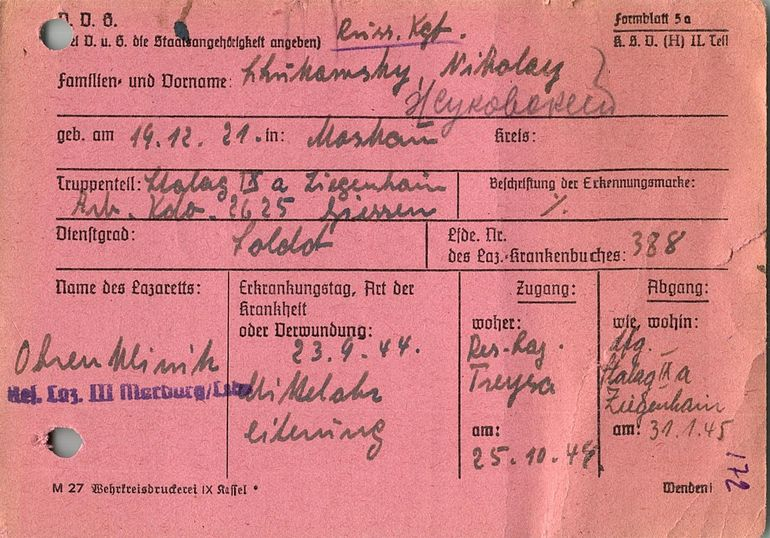 D. D. G.
Formblatt 5a
(bei D. u. G. die Staatsangehörigkeit angeben) Russ. Kgf.
K. S. D. (H) II. Teil
Familien- und Vorname: Shukowsky, Nikolay
Жуковский
geb. am 19.12.21. in: Moskau Kreis:
Truppenteil: Stalag IX a Ziegenhain
Arb. Kdo. 2625 Giessen
Beschriftung der Erkennungsmarke:
%
Dienstgrad: Soldat
Lfde. Nr.
des Laz.-Krankenbuches: 388
Name des Lazaretts:
Ohrenklinik
Res. Laz. III Marburg/Lahn
Erkrankungstag, Art der
Krankheit
oder Verwundung:
23.9.44.
Mittelohr
eiterung
Zugang:
woher:
Res.-Laz.
Treysa
am:
25.10.44.
Abgang:
wie, wohin:
Stalag IX a
Ziegenhain
am: 31.1.45
M 27 Wehrkreisdruckerei IX Kassel *
Wenden!
172